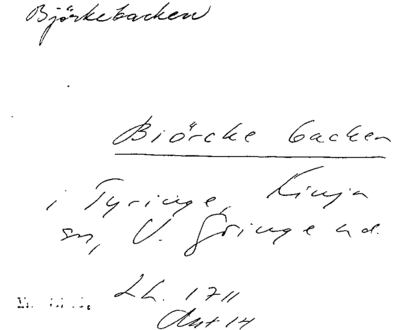 Björkebacken
Biörcke backen
i Tyringe, Finja
sn, V. Göinge hd.
Lh. 1711
Ant 14